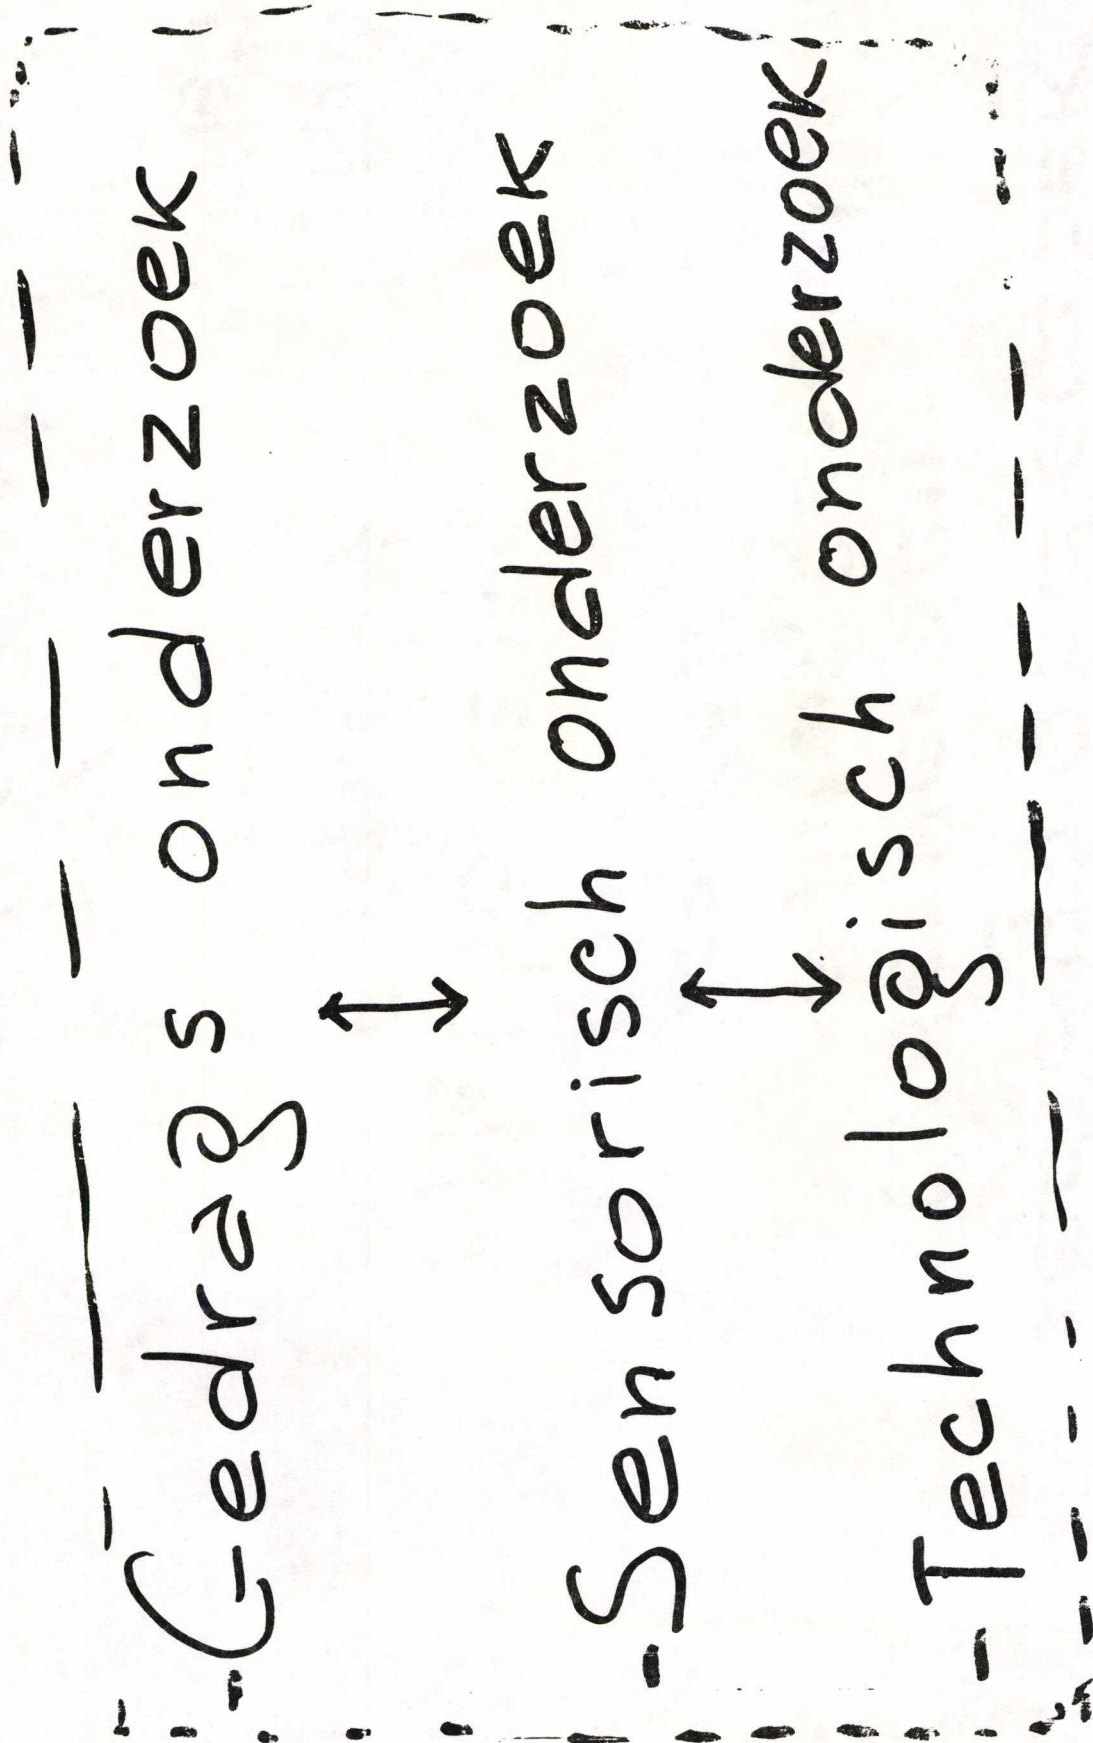 - Gedrags onderzoek
- Sensorisch onderzoek
- Technologisch onderzoek